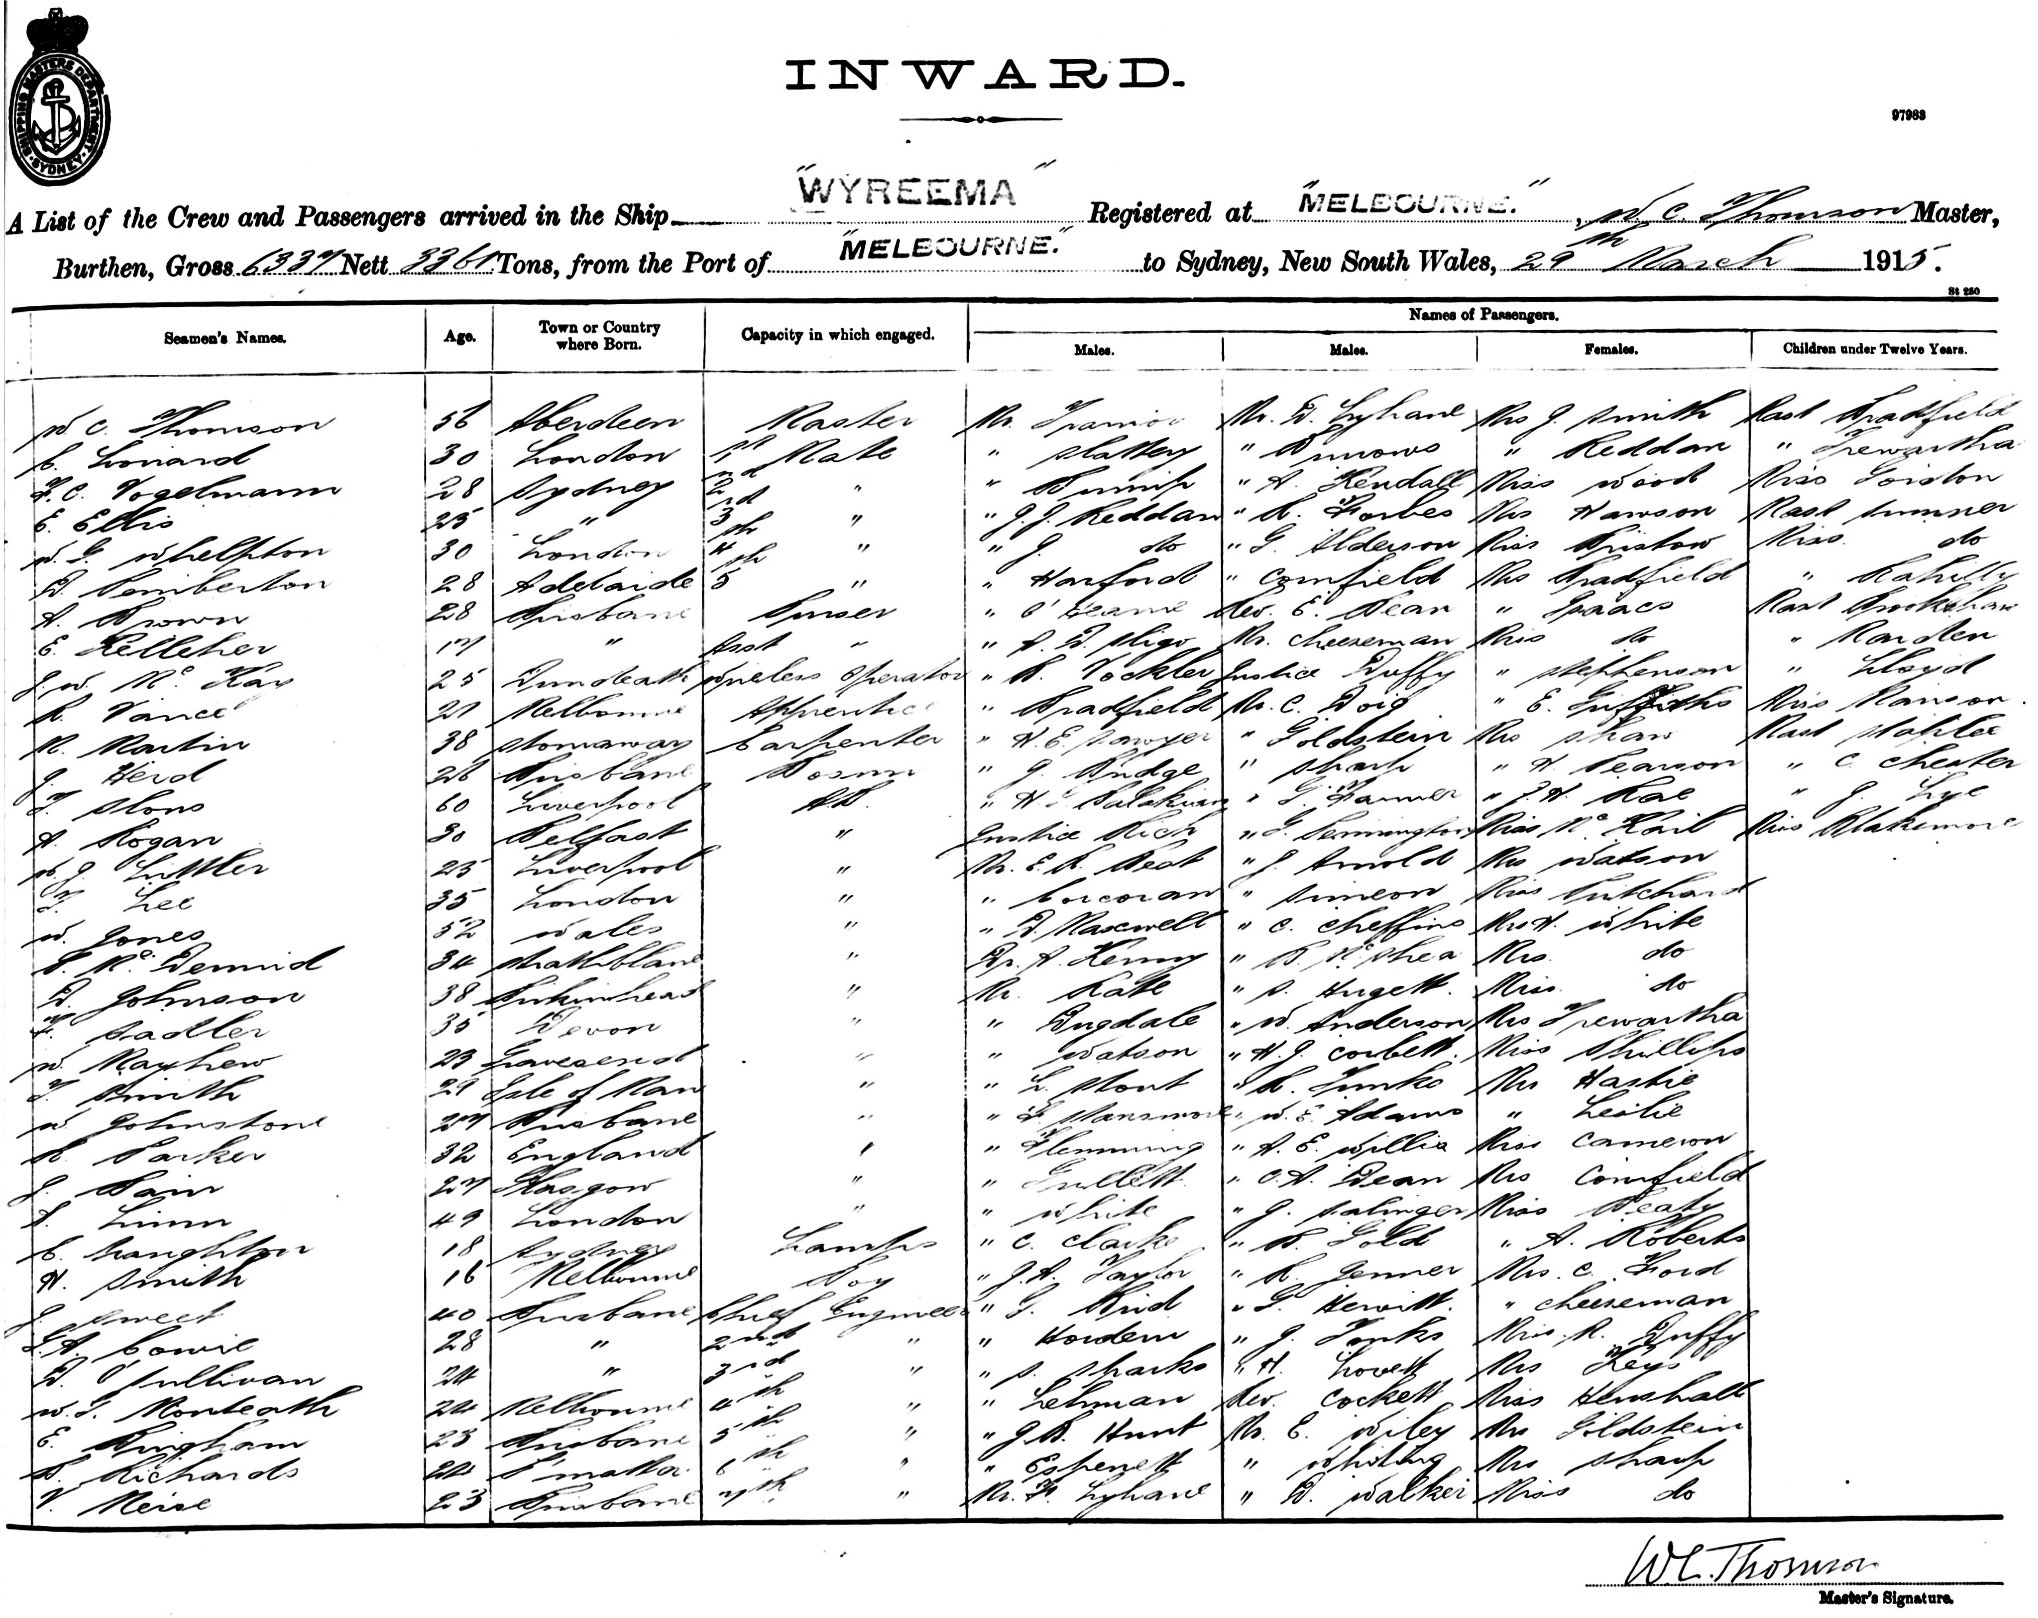 SHIPPING MASTERS DEPARTMENT SYDNEY
INWARD.
97983
A List of the Crew and Passengers arrived in the Ship "WYREEMA" Registered at "MELBOURNE.", W. C. Thomson Master,
Burthen, Gross 6337 Nett 3361 Tons, from the Port of "MELBOURNE." to Sydney, New South Wales, 29th March 1915.
St 250
Names of Passengers.
Seamen's Names. Age. Town or Country where Born. Capacity in which engaged. Males. Males. Females. Children under Twelve Years.
W C. Thomson 56 Aberdeen Master Mr. Mr. D. Lyhane Mrs J. Smith Mast Bradfield
C. Lonard 30 London 1st Mate " Slattery " " Reddan " Trewartha
F. C. Vogelmann 28 Sydney 2nd " " " A. Kendall Miss Wood Miss
E. Ellis 25 " 3rd " " J. J. Reddan " R. Forbes Mrs Hawson Mast Sumner
W. G. Whelpton 30 London 4th " " J. do " G. Alderson Miss Bristow Miss. do
D. Pemberton 28 Adelaide 5th " " Harford " Cornfield Mrs Bradfield " Rahilly
A. Brown 28 Brisbane Purser " Rev. E. Bean " Isaacs Mast Brookshaw
E. Kelleher 17 " Asst " " A. D. Sligo Mr. Cheeseman Miss do " Marden
J. W. Mc Kay 25 Wireless Operator " R. Vockler Justice Duffy " Stephenson " Lloyd
R. Vance 21 Melbourne Apprentice " Bradfield Mr. C. Doig " E. Griffiths Miss Manson.
M. Martin 38 Stornaway Carpenter " H. E. Sawyer " Goldstein Mrs Shaw Mast
J. Herd 26 Brisbane Bosun " J. Budge " Sharp " H. Pearson " C. Chester
T. Slons 60 Liverpool AB. " " G. Farmer " J. H. Rae " J. Lye
A. Hogan 30 Belfast " Justice Rich " G. Pennington Miss Mc Kail Miss Blakemore
W. J. Littler 25 Liverpool " Mr. E. R. Peat " J. Arnold Mrs Watson
T. Lee 35 London " " Corcoran " Simeon Miss Pritchard
W. Jones 52 Wales " " D. Maxwell " C. Cheffins Mrs H. White
P. Mc Dermid 34 Strathblane " Dr. A. Kenny " B. McShea Mrs. do
D. Johnson 38 Birkinhead " Mr. Kate " S. Hugett. Miss. do
F. Sadler 35 Devon " " Dugdale " W. Anderson Mrs Trewartha
W. Mayhew 23 Gravesend " " Watson " H. J. Corbett. Miss Phillips
T. Smith 29 Isle of Man " " L. Stout " R. Mrs Hastie
W Johnstone 27 Brisbane " " F " W. E. Adams " Leslie
R. Parker 32 England " " Flemming " A. E. Willis Miss Cameron
J. Bain 27 Glasgow " " Gullett. " C. A. Dean Mrs Cornfield
A. Linn 49 London " " White " J. Salinger Miss Beaty
C. Naughton 18 Sydney Lamps " C. Clarke " B. Gold " A. Roberts
H. Smith 16 Melbourne Boy " J. A. Taylor " R. Jenner Mrs. C. Ford
J. Sweet 40 Brisbane Chief Engineer " G. " G. Hewitt. " Cheeseman
Cowie 28 " 2nd " " Hordern " J. Tonks Miss. R. Duffy
D. O'Sullivan 24 " 3rd " " S. Sharks " H. Lovett Mrs Keys
W. G. Monteath 24 Melbourne 4th " " Lehman Rev. Cockett Miss Henshall
E. Bingham 23 Brisbane 5th " " J. B. Hunt Mr. E. Wiley Mrs Goldstein
Richards 24 P'matta 6th " " Espenett " Whiting Mrs Sharp
V. Meise 23 Brisbane 7th " Mr. F. Lyhane " D. Walker Miss do
W.C. Thomson
Master's Signature.